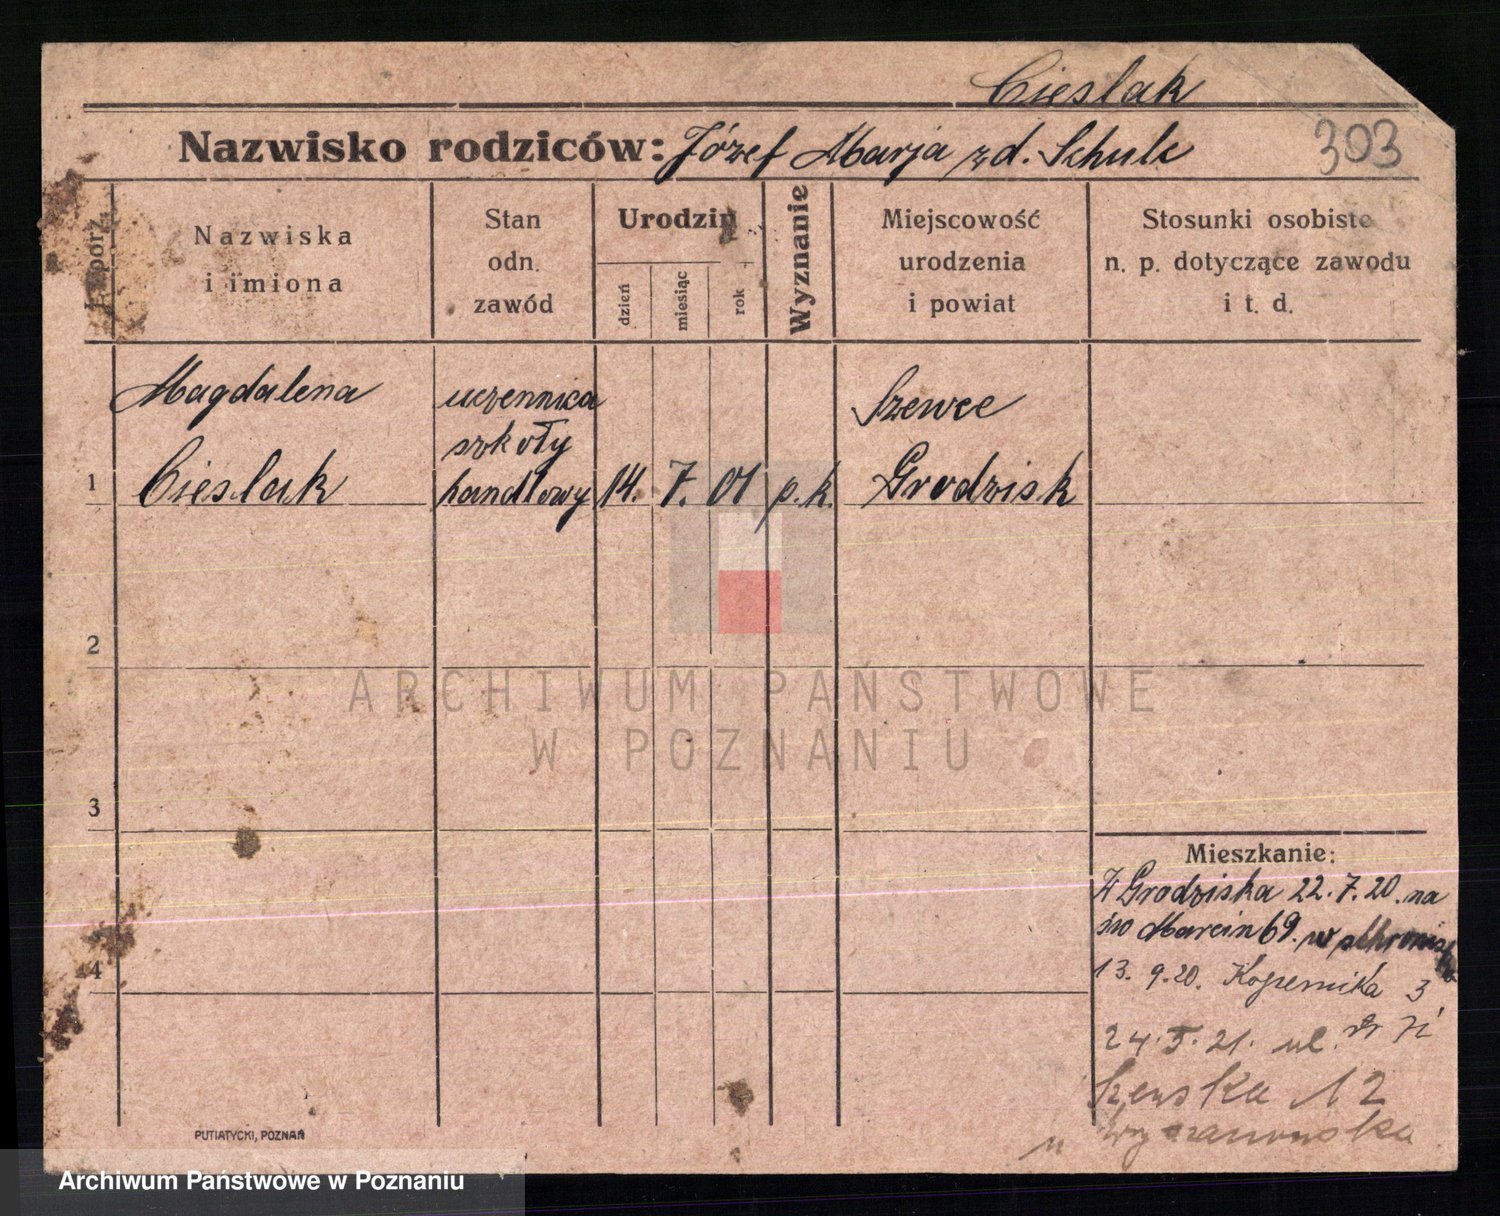 Cieslak
Nazwisko rodziców: Józef Marja z d. Schulc
303
L. porz.
Nazwiska
i imiona
Stan
odn.
zawód
Urodzin
dzień
miesiąc
rok
Wyznanie
Miejscowość
urodzenia
i powiat
Stosunki osobiste
n. p. dotyczące zawodu
i t. d.
Magdalena
Cieslak
uczennica
szkoły
handlowy
14. 7. 01 p. k.
Szewce
Grodzisk
1
2
3
4
ARCHIWUM PAŃSTWOWE
W POZNANIU
Mieszkanie:
Z Grodziska 22.7.20. na
św Marcin 69. w
13. 9. 20. Kopernika 3
24. 21. ul.
Szewska 12
u
PUTIATYCKI, POZNAŃ
Archiwum Państwowe w Poznaniu